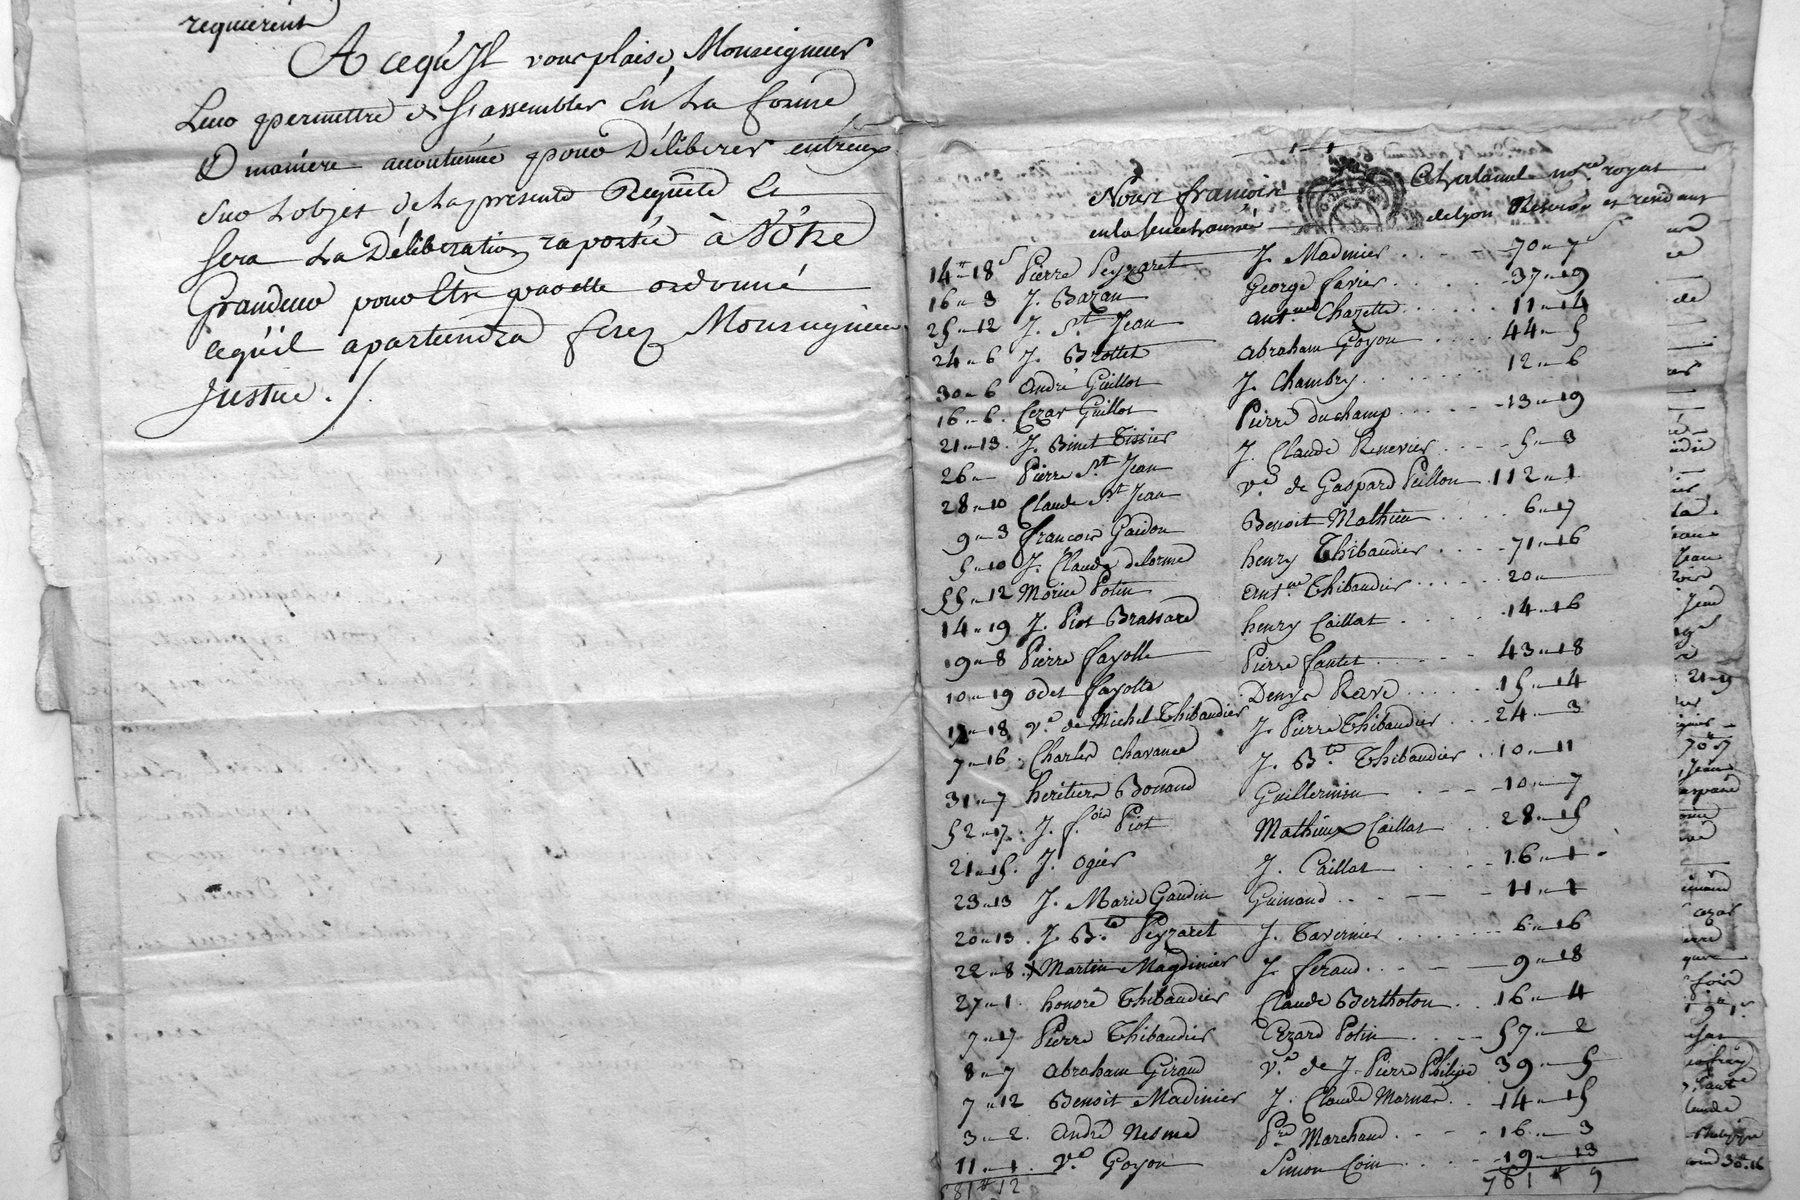 requierent
A cequ'Jl vous plaise, Monseigneur
Leur permettre de s'assembler En La forme
& maniere accoutumée pour Déliberer entreux
sur Lobjet de La presente Requête Et
sera La Déliberation raportée à Vôtre
Grandeur pour Etre par elle ordonné
cequ'il apartiendra ferez Monseigneur
Justice ./.
Nous françois Chulamel no.re royal
en la senechaussée de Lyon Reservé et rendant
14tt 18s Pierre Peyzaret
16 " 3 J. Bazan
25 " 12 J. St. Jean
24 " 6 J. Brottet
30 " 6 André Guillot
16 " 6 Cezar Guillot
21 " 13 J. Binet Tissier
26 " Pierre St. Jean
28 " 10 Claude St. Jean
9 " 3 francois Gaudon
5 " 10 J. Claude delorme
55 " 12 Morice Potin
14 " 19 J. Piot Brassard
9 " 8 Pierre fayolle
10 " 19 odet fayolle
" 18 v.e de Michel Thibaudier
7 " 16 Charles Chavance
31 " 7 heritiers Bonand
52 " 17 J. f.ois Piot
21 " 15 J. ogier
23 " 13 J. Marie Gaudin
20 " 13 J. B.te Peyzaret
22 " 8 Martin Magdinier
27 " 1 honoré Thibaudier
7 " 17 Pierre Thibaudier
8 " 7 abraham Giraud
7 " 12 Benoit Madinier
3 " 2 andré Nesme
11 " 1 V.e Goyon
581tt 12
J. Madinier 70 " 7s
George favier 37 " 19
ant.ne Chazette 11 " 14
abraham Goyon 44 " 5
J. Chambry 12 " 6
Pierre duchamp 13 " 19
J. Claude Renevier 5 " 3
v.e de Gaspard Peillon 112 " 1
Benoit Mathieu 6 " 17
henry Thibaudier 71 " 16
ant.ne Thibaudier 20 "
henry Caillat 14 " 16
Pierre fantet 43 " 18
Denys Rave 15 " 14
J. Pierre Thibaudier 24 " 3
J. B.te Thibaudier 10 " 11
Guillermin 10 " 7
Mathieux Caillat 28 " 15
J. Caillat 16 " 1
Guimond 11 " 1
J. Tavernier 6 " 16
J. feraud 9 " 18
Claude Bertholon 16 " 4
Cezard Potin 57 " 2
v.e de J. Pierre Philipe 39 " 5
J. Claude Mornas 14 " 15
P.re Marchand 16 " 3
Simon Coin 19 " 13
761tt 9